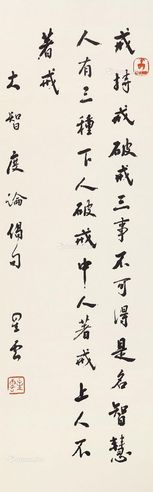 戒持戒破戒三事不可得是名智慧
人有三種下人破戒中人著戒上人不
著戒
大智度論偈句 星雲